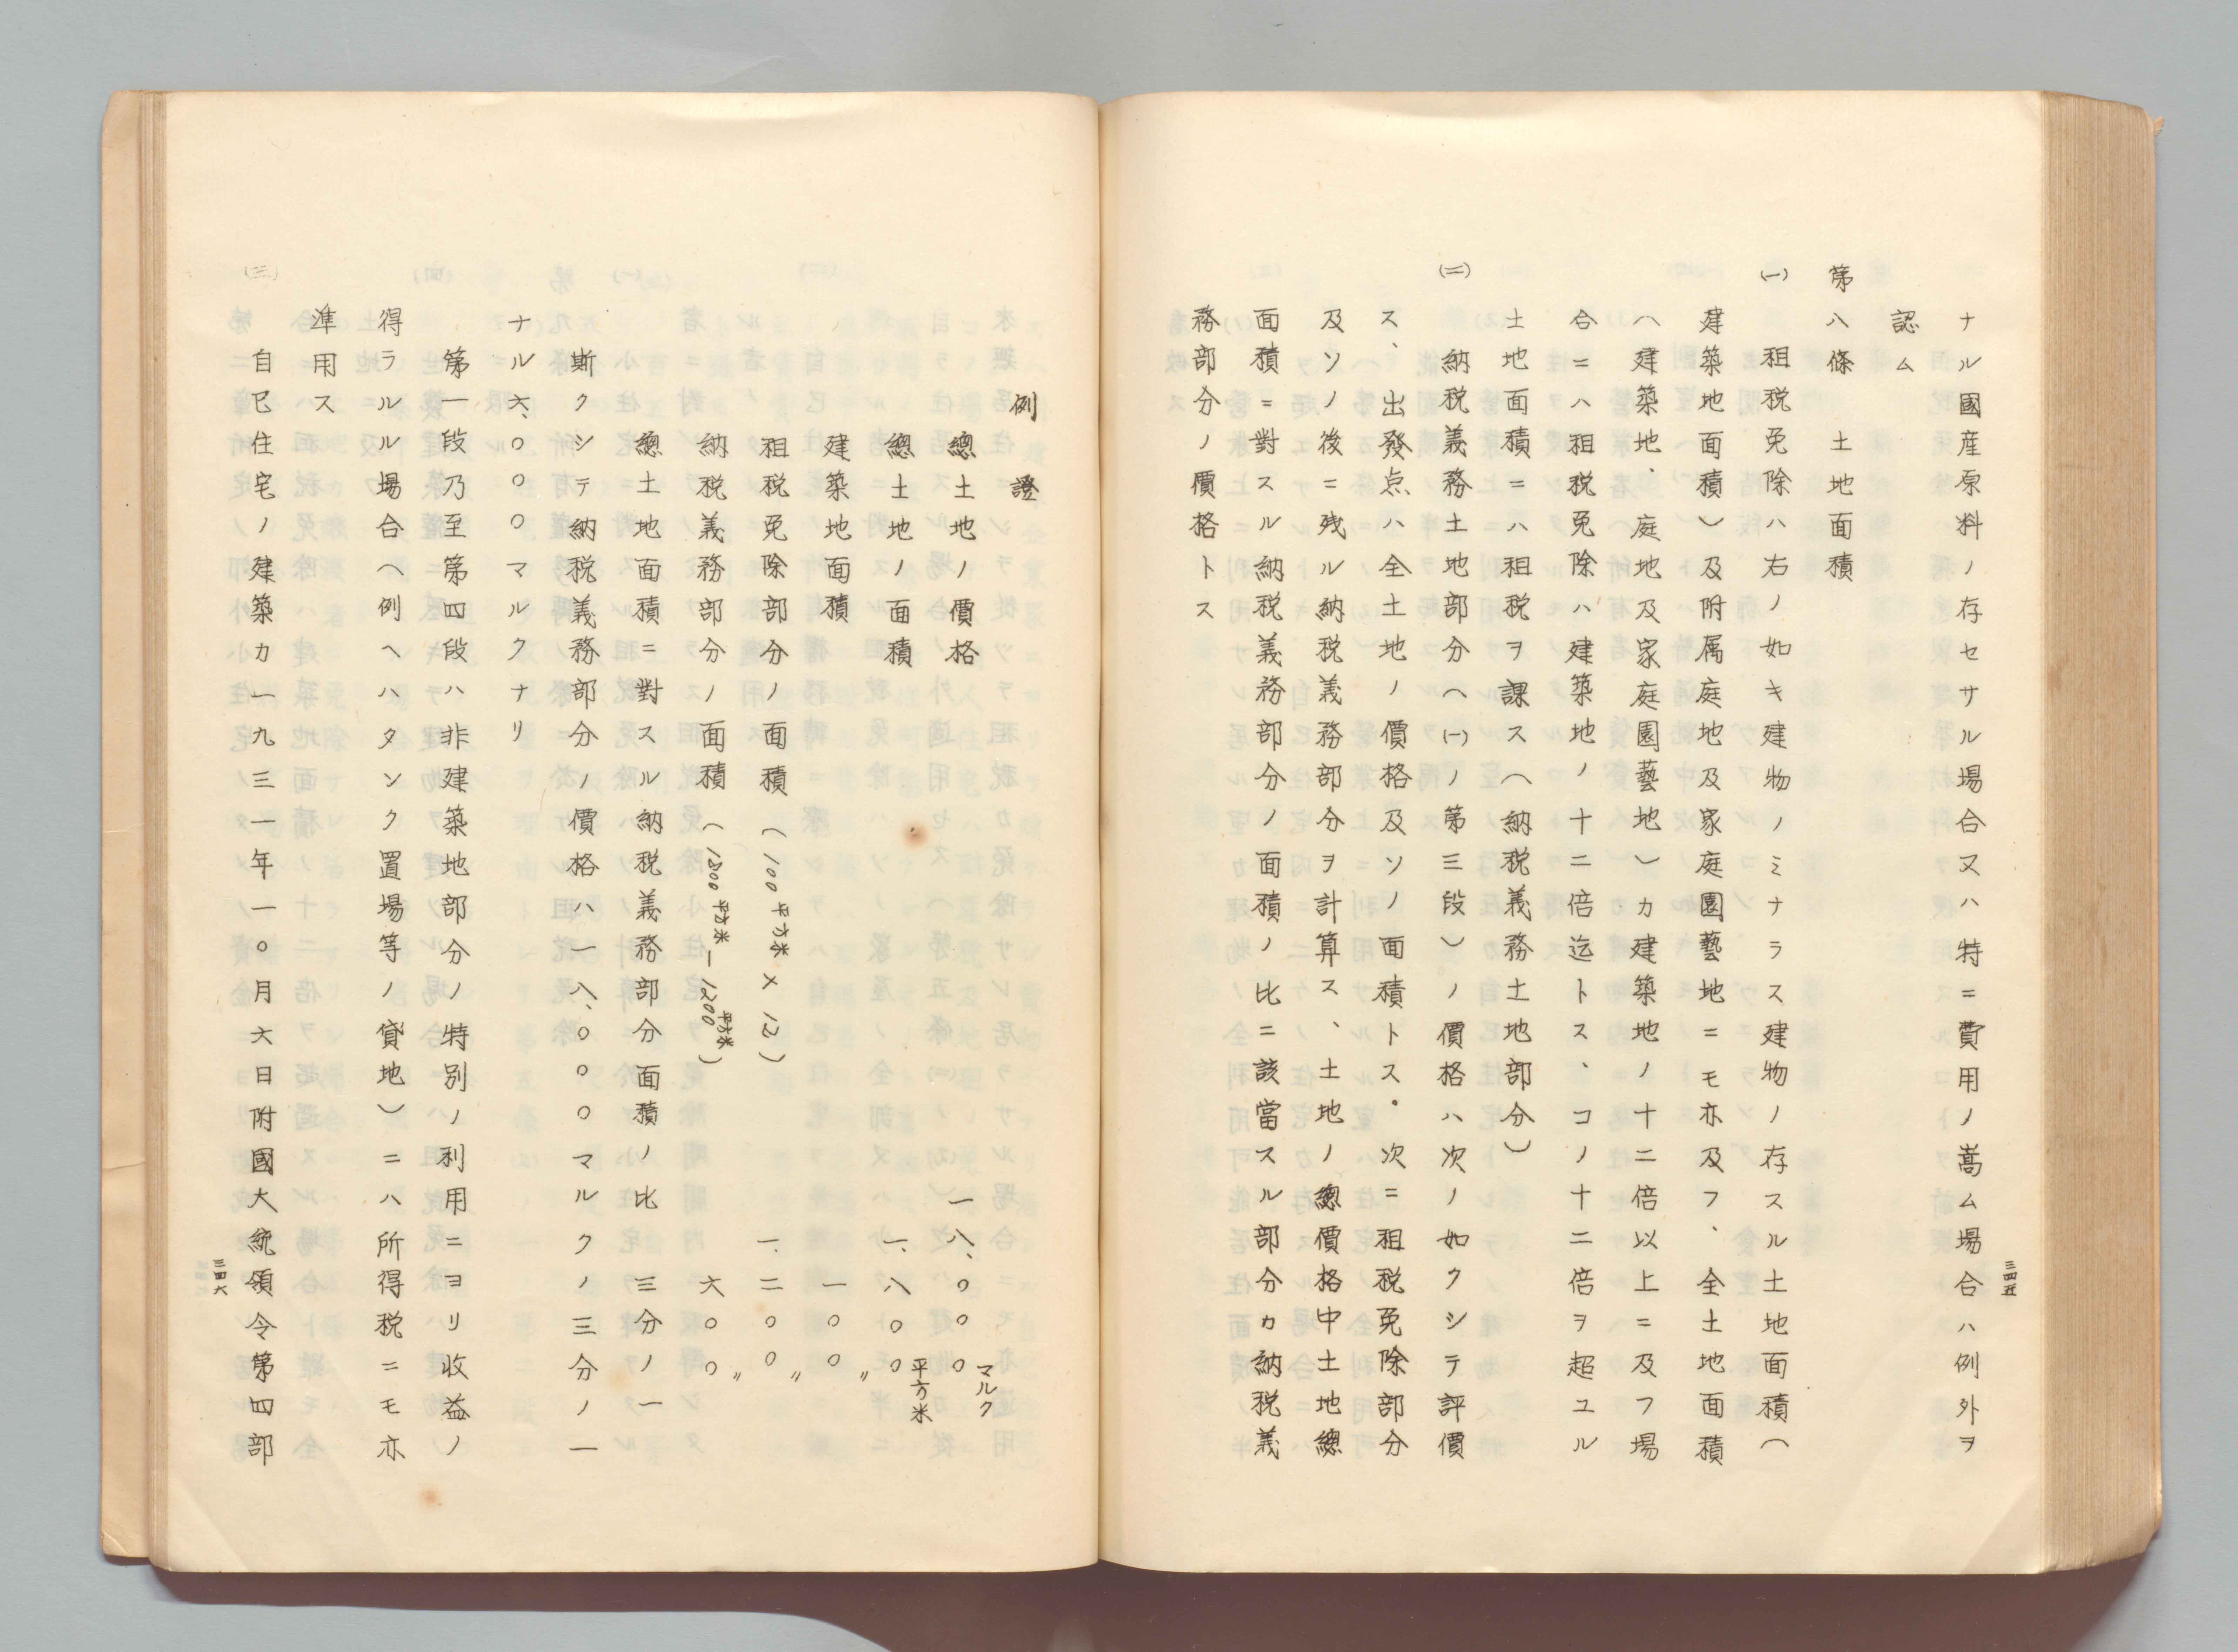 ナル國産原料ノ存セサル場合又ハ特ニ費用ノ嵩ム場合ハ例外ヲ
認ム
第八條　土地面積
(一)　租税免除ハ右ノ如キ建物ノミナラス建物ノ存スル土地面積（
建築地面積）及附属庭地及家庭園藝地ニモ亦及フ、全土地面積
（建築地、庭地及家庭園藝地）カ建築地ノ十二倍以上ニ及フ場
合ニハ租税免除ハ建築地ノ十二倍迄トス、コノ十二倍ヲ超ユル
土地面積ニハ租税ヲ課ス（納税義務土地部分）
(二)　納税義務土地部分（(一)ノ第三段）ノ價格ハ次ノ如クシテ評價
ス、出發点ハ全土地ノ價格及ソノ面積トス。次ニ租税免除部分
及ソノ後ニ残ル納税義務部分ヲ計算ス、土地ノ總價格中土地總
面積ニ對スル納税義務部分ノ面積ノ比ニ該當スル部分カ納税義
務部分ノ價格トス
三四五
例證
總土地ノ價格　一八、〇〇〇マルク
總土地ノ面積　一、八〇〇平方米
建築地面積　一〇〇〃
租税免除部分ノ面積（100平方米×12）　一、二〇〇〃
納税義務部分ノ面積（1800平方米－1200平方米）　六〇〇〃
總土地面積ニ對スル納税義務部分面積ノ比　三分ノ一
斯クシテ納税義務部分ノ價格ハ一八、〇〇〇マルクノ三分ノ一
ナル六、〇〇〇マルクナリ
第一段乃至第四段ハ非建築地部分ノ特別ノ利用ニヨリ收益ノ
得ラルル場合（例ヘハタンク置場等ノ貸地）ニハ所得税ニモ亦
準用ス
(三)　自己住宅ノ建築カ一九三一年一〇月六日附國大統領令第四部
三四六